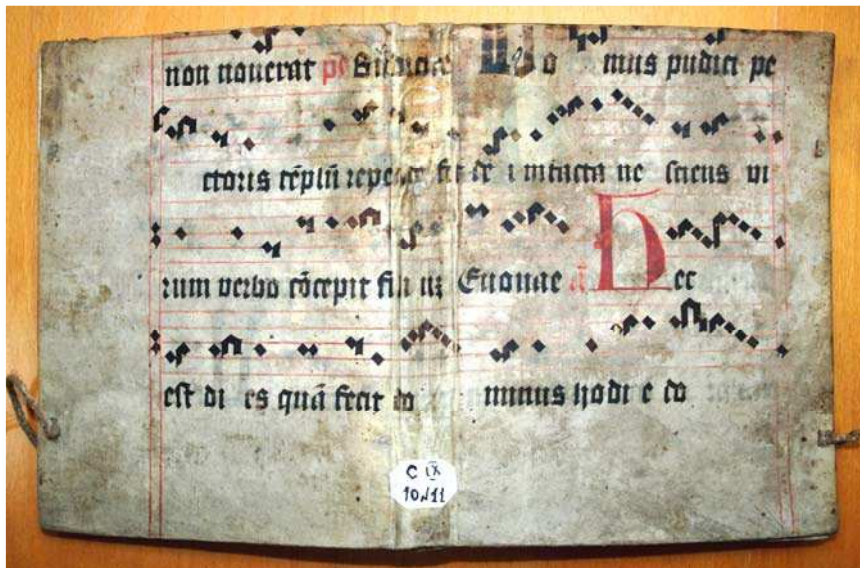 non nouerat ps Benedictꝰ Do mus pudici pe
ctoris tēplū repente fit de i intacta ne sciens vi
rum verbo cōcepit filiū Euouae ā Hec
est di es quā fecit do minus hodi e do
C IX
10411